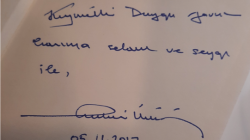 Kıymetli Duygu
hanıma selam ve saygı
ile,
05.11.2017